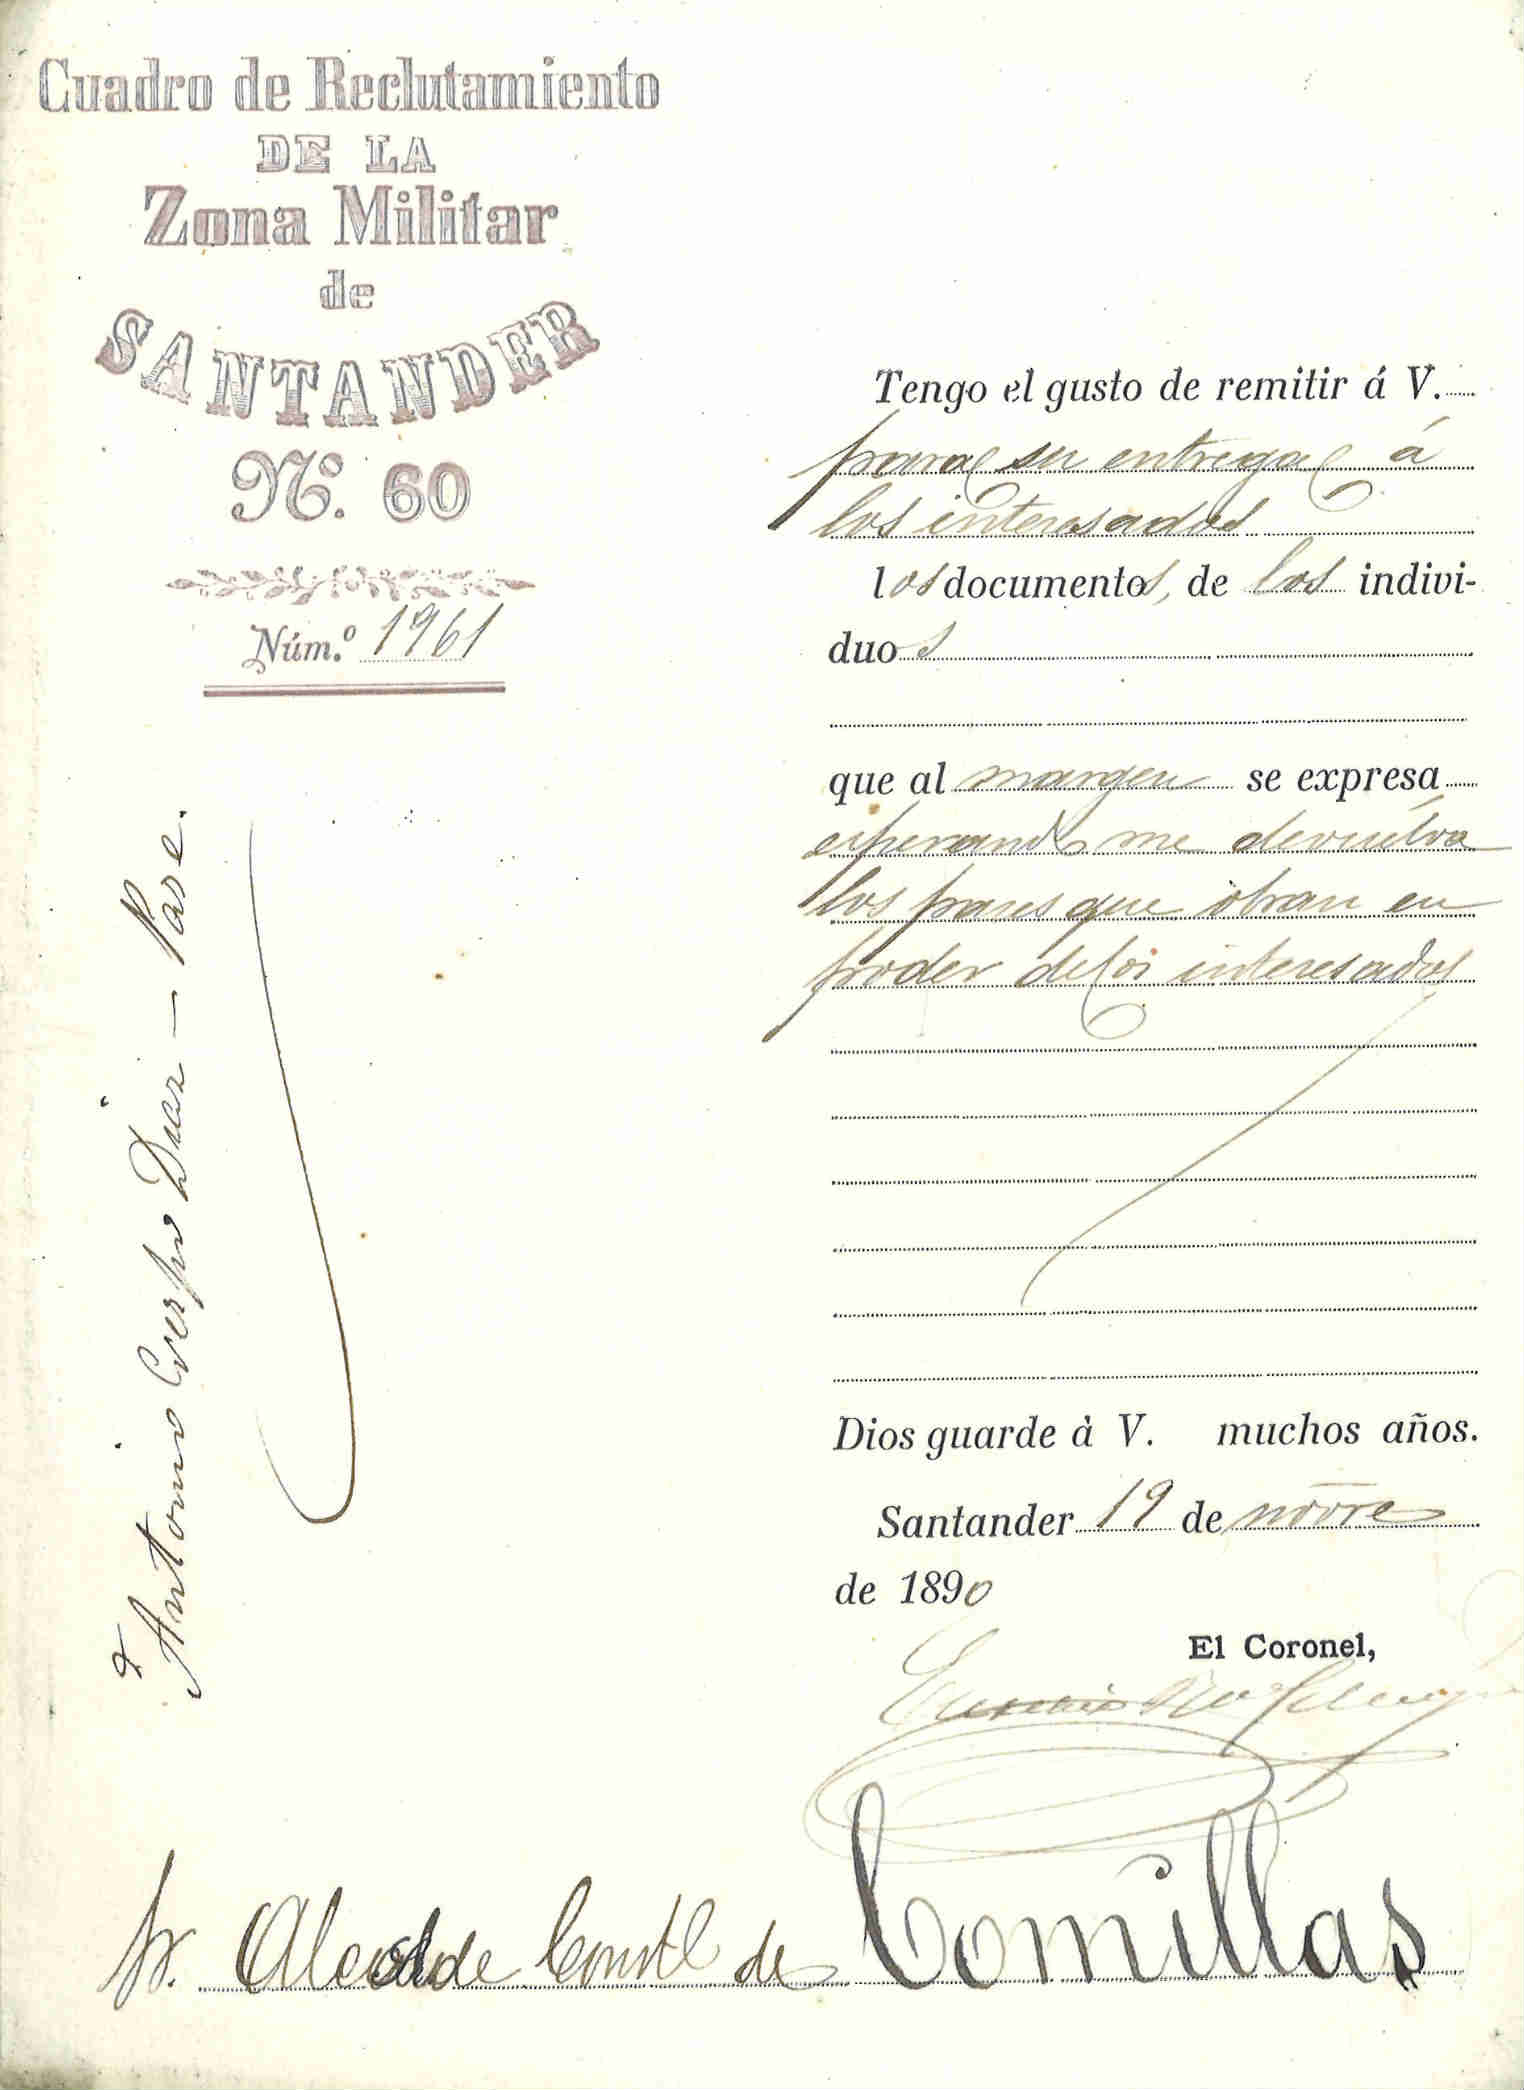 Cuadro de Reclutamiento
DE LA
Zona Militar
de
SANTANDER
Nº. 60
Núm.º 1961
Antonio Crespo Diaz — Pase.
Tengo el gusto de remitir á V.
para su entrega á
los interesados
los documentos, de los indivi-
duos
que al margen se expresa
esperando me devuelva
los pases que obran en
poder de los interesados
Dios guarde à V. muchos años.
Santander 19 de novre
de 1890
El Coronel,
Sr. Alcalde Constl de Comillas